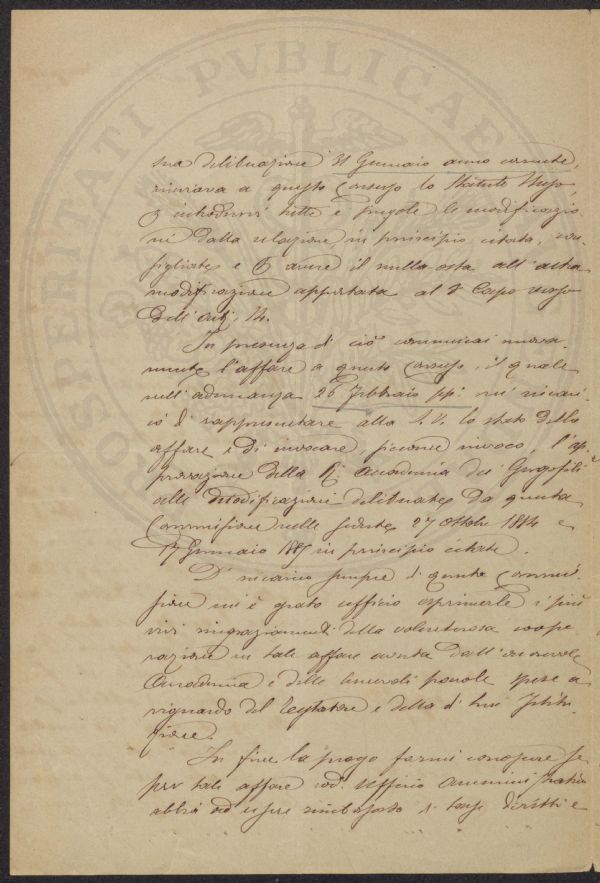 PROSPERITATI PVBLICAE
sua deliberazione 31 Gennaio anno corrente,
rinviava a questo Consesso lo Statuto stesso,
introdurvi tutte e singole le modificazio
ni dalla relazione in principio citata, con-
sigliate, e avere il nulla osta all'altra
modificazione apportata al Capo verso
dell'art. 14.
In presenza di ciò comunicai nuova-
mente l'affare a questo Consesso, il quale
nell'adunanza 26 Febbraio pp. mi incari-
cò di rappresentare alla S.V. lo stato dello
affare e di invocare, siccome invoco, l'ap-
provazione della R. Accademia dei Georgofili
alle modificazioni deliberate da questa
Commissione nelle sedute 27 Ottobre e
17 Gennaio in principio citate.
D'incarico sempre di questa Commis-
sione mi è grato ufficio esprimerle i più
vivi ringraziamenti della volenterosa coope-
razione in tale affare avuta dall'onorevole
Accademia e delle benevoli parole spese a
riguardo del Testatore e della di lui Istitu-
zione.
In fine la prego farmi conoscere se
per tale affare cod. Ufficio Amministrativo
abbia ad essere rimborsato di tasse, diritti e